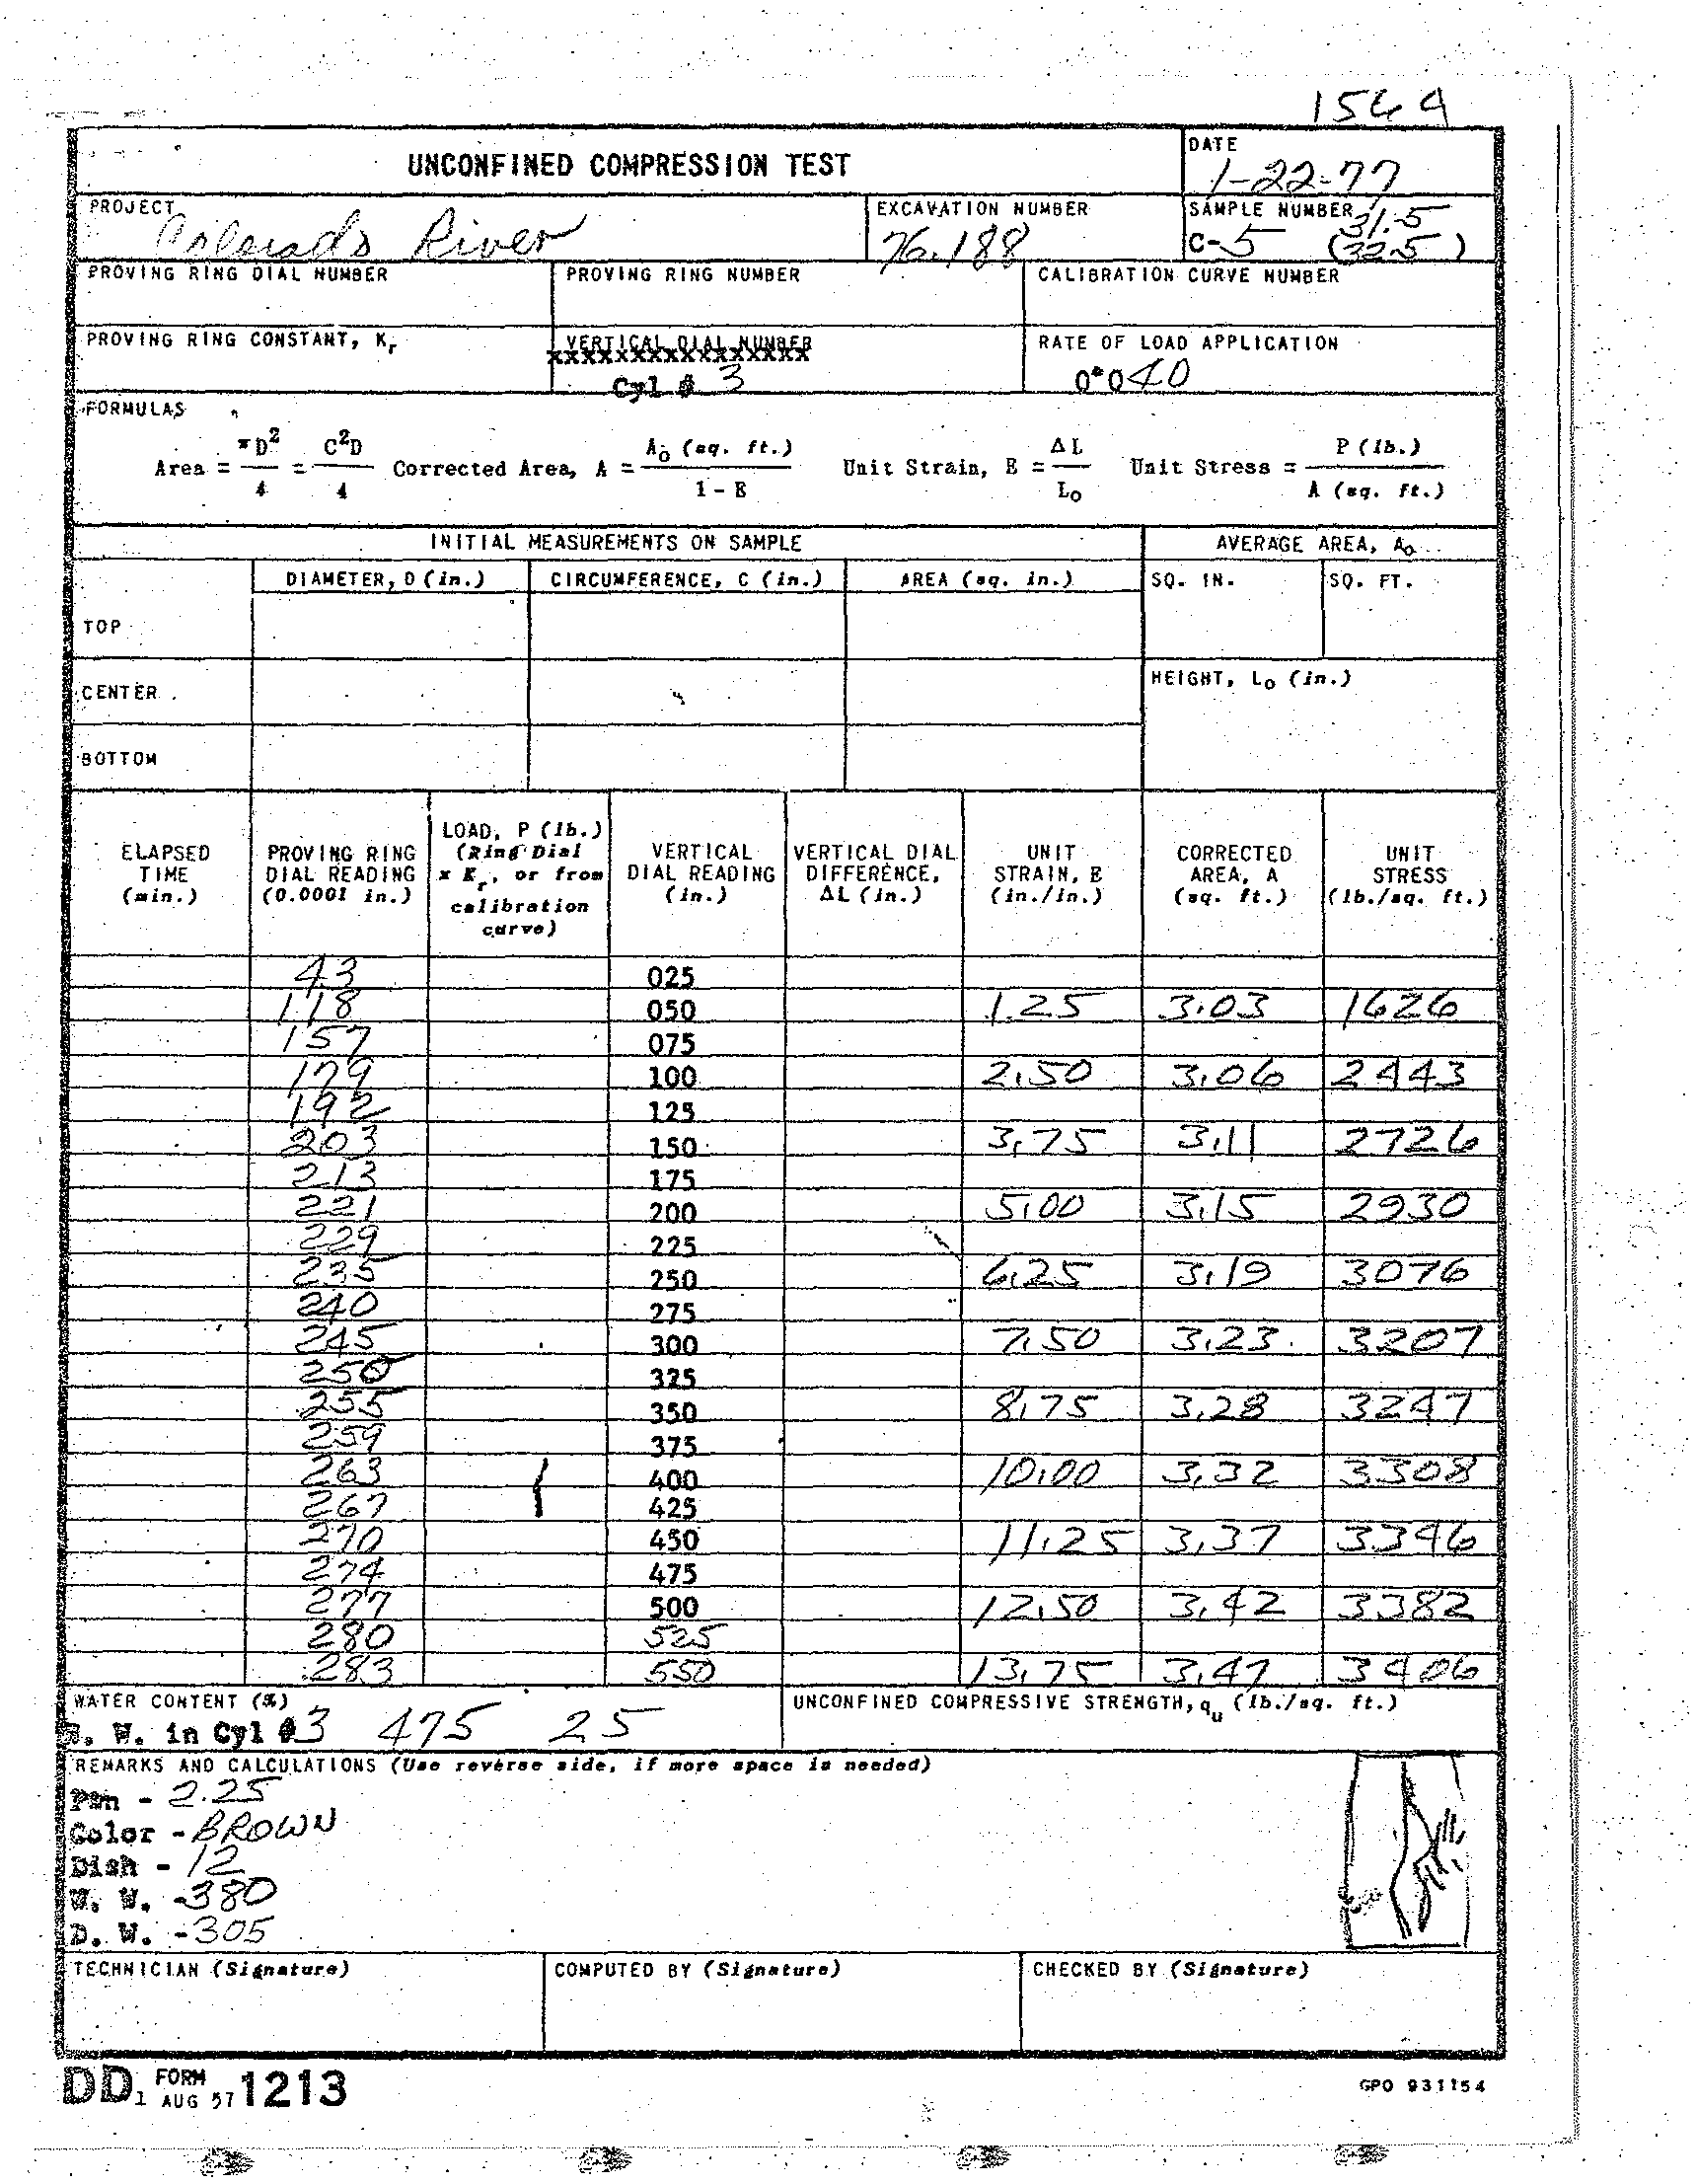 1564
UNCONFINED COMPRESSION TEST
DATE
1-22-77
PROJECT
Colorado River
EXCAVATION NUMBER
76.188
SAMPLE NUMBER 31.5
C-5 (32.5)
PROVING RING DIAL NUMBER
PROVING RING NUMBER
CALIBRATION CURVE NUMBER
PROVING RING CONSTANT, Kr
VERTICAL DIAL NUMBER
XXXXXXXXXXXXXXXX
Cyl # 3
RATE OF LOAD APPLICATION
0*040
FORMULAS
Area = πD²/4 = C²D/4 Corrected Area, A = Ao (sq. ft.)/1 - E Unit Strain, E = ΔL/Lo Unit Stress = P (lb.)/A (sq. ft.)
INITIAL MEASUREMENTS ON SAMPLE
AVERAGE AREA, Ao
DIAMETER, D (in.) CIRCUMFERENCE, C (in.) AREA (sq. in.) SQ. IN. SQ. FT.
TOP
CENTER
HEIGHT, Lo (in.)
BOTTOM
ELAPSED TIME (min.)
PROVING RING DIAL READING (0.0001 in.)
LOAD, P (lb.) (Ring Dial x Kr, or from calibration curve)
VERTICAL DIAL READING (in.)
VERTICAL DIAL DIFFERENCE, ΔL (in.)
UNIT STRAIN, E (in./in.)
CORRECTED AREA, A (sq. ft.)
UNIT STRESS (lb./sq. ft.)
43 025
118 050 1.25 3.03 1626
157 075
179 100 2.50 3.06 2443
192 125
203 150 3.75 3.11 2726
213 175
221 200 5.00 3.15 2930
229 225
235 250 6.25 3.19 3076
240 275
245 300 7.50 3.23 3207
250 325
255 350 8.75 3.28 3247
259 375
263 400 10.00 3.32 3308
267 425
270 450 11.25 3.37 3346
274 475
277 500 12.50 3.42 3382
280 525
283 550 13.75 3.47 3406
WATER CONTENT (%)
W. in Cyl # 3 475 25
UNCONFINED COMPRESSIVE STRENGTH, qu (lb./sq. ft.)
REMARKS AND CALCULATIONS (Use reverse side, if more space is needed)
Pen - 2.25
Color - BROWN
Dish - 12
W. W. - 380
D. W. - 305
TECHNICIAN (Signature)
COMPUTED BY (Signature)
CHECKED BY (Signature)
DD FORM 1 AUG 57 1213
GPO 931154